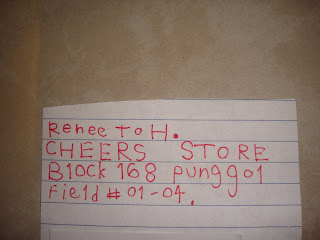 Renee To H.
CHEERS STORE
Block 168 punggol
Field # 01-04.